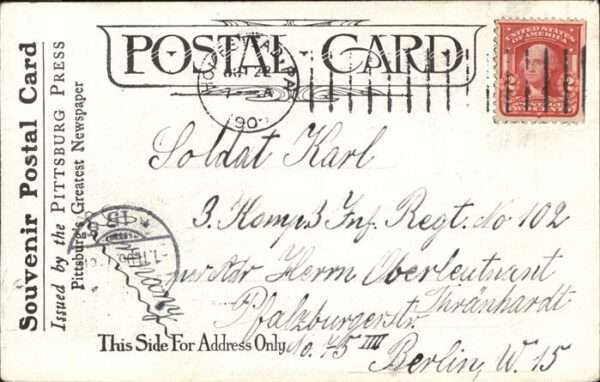 POSTAL CARD
Souvenir Postal Card
Issued by the PITTSBURG PRESS
Pittsburg's Greatest Newspaper
UNITED STATES OF AMERICA
2 2
7 - A
190
Soldat Karl
3. Komp. 3 Inf. Regt. No 102
per Adr Herrn Oberleutnant
Thränhardt
Pfalzburgerstr.
No. 75 IIII
Berlin, W. 15
Germany
This Side For Address Only.